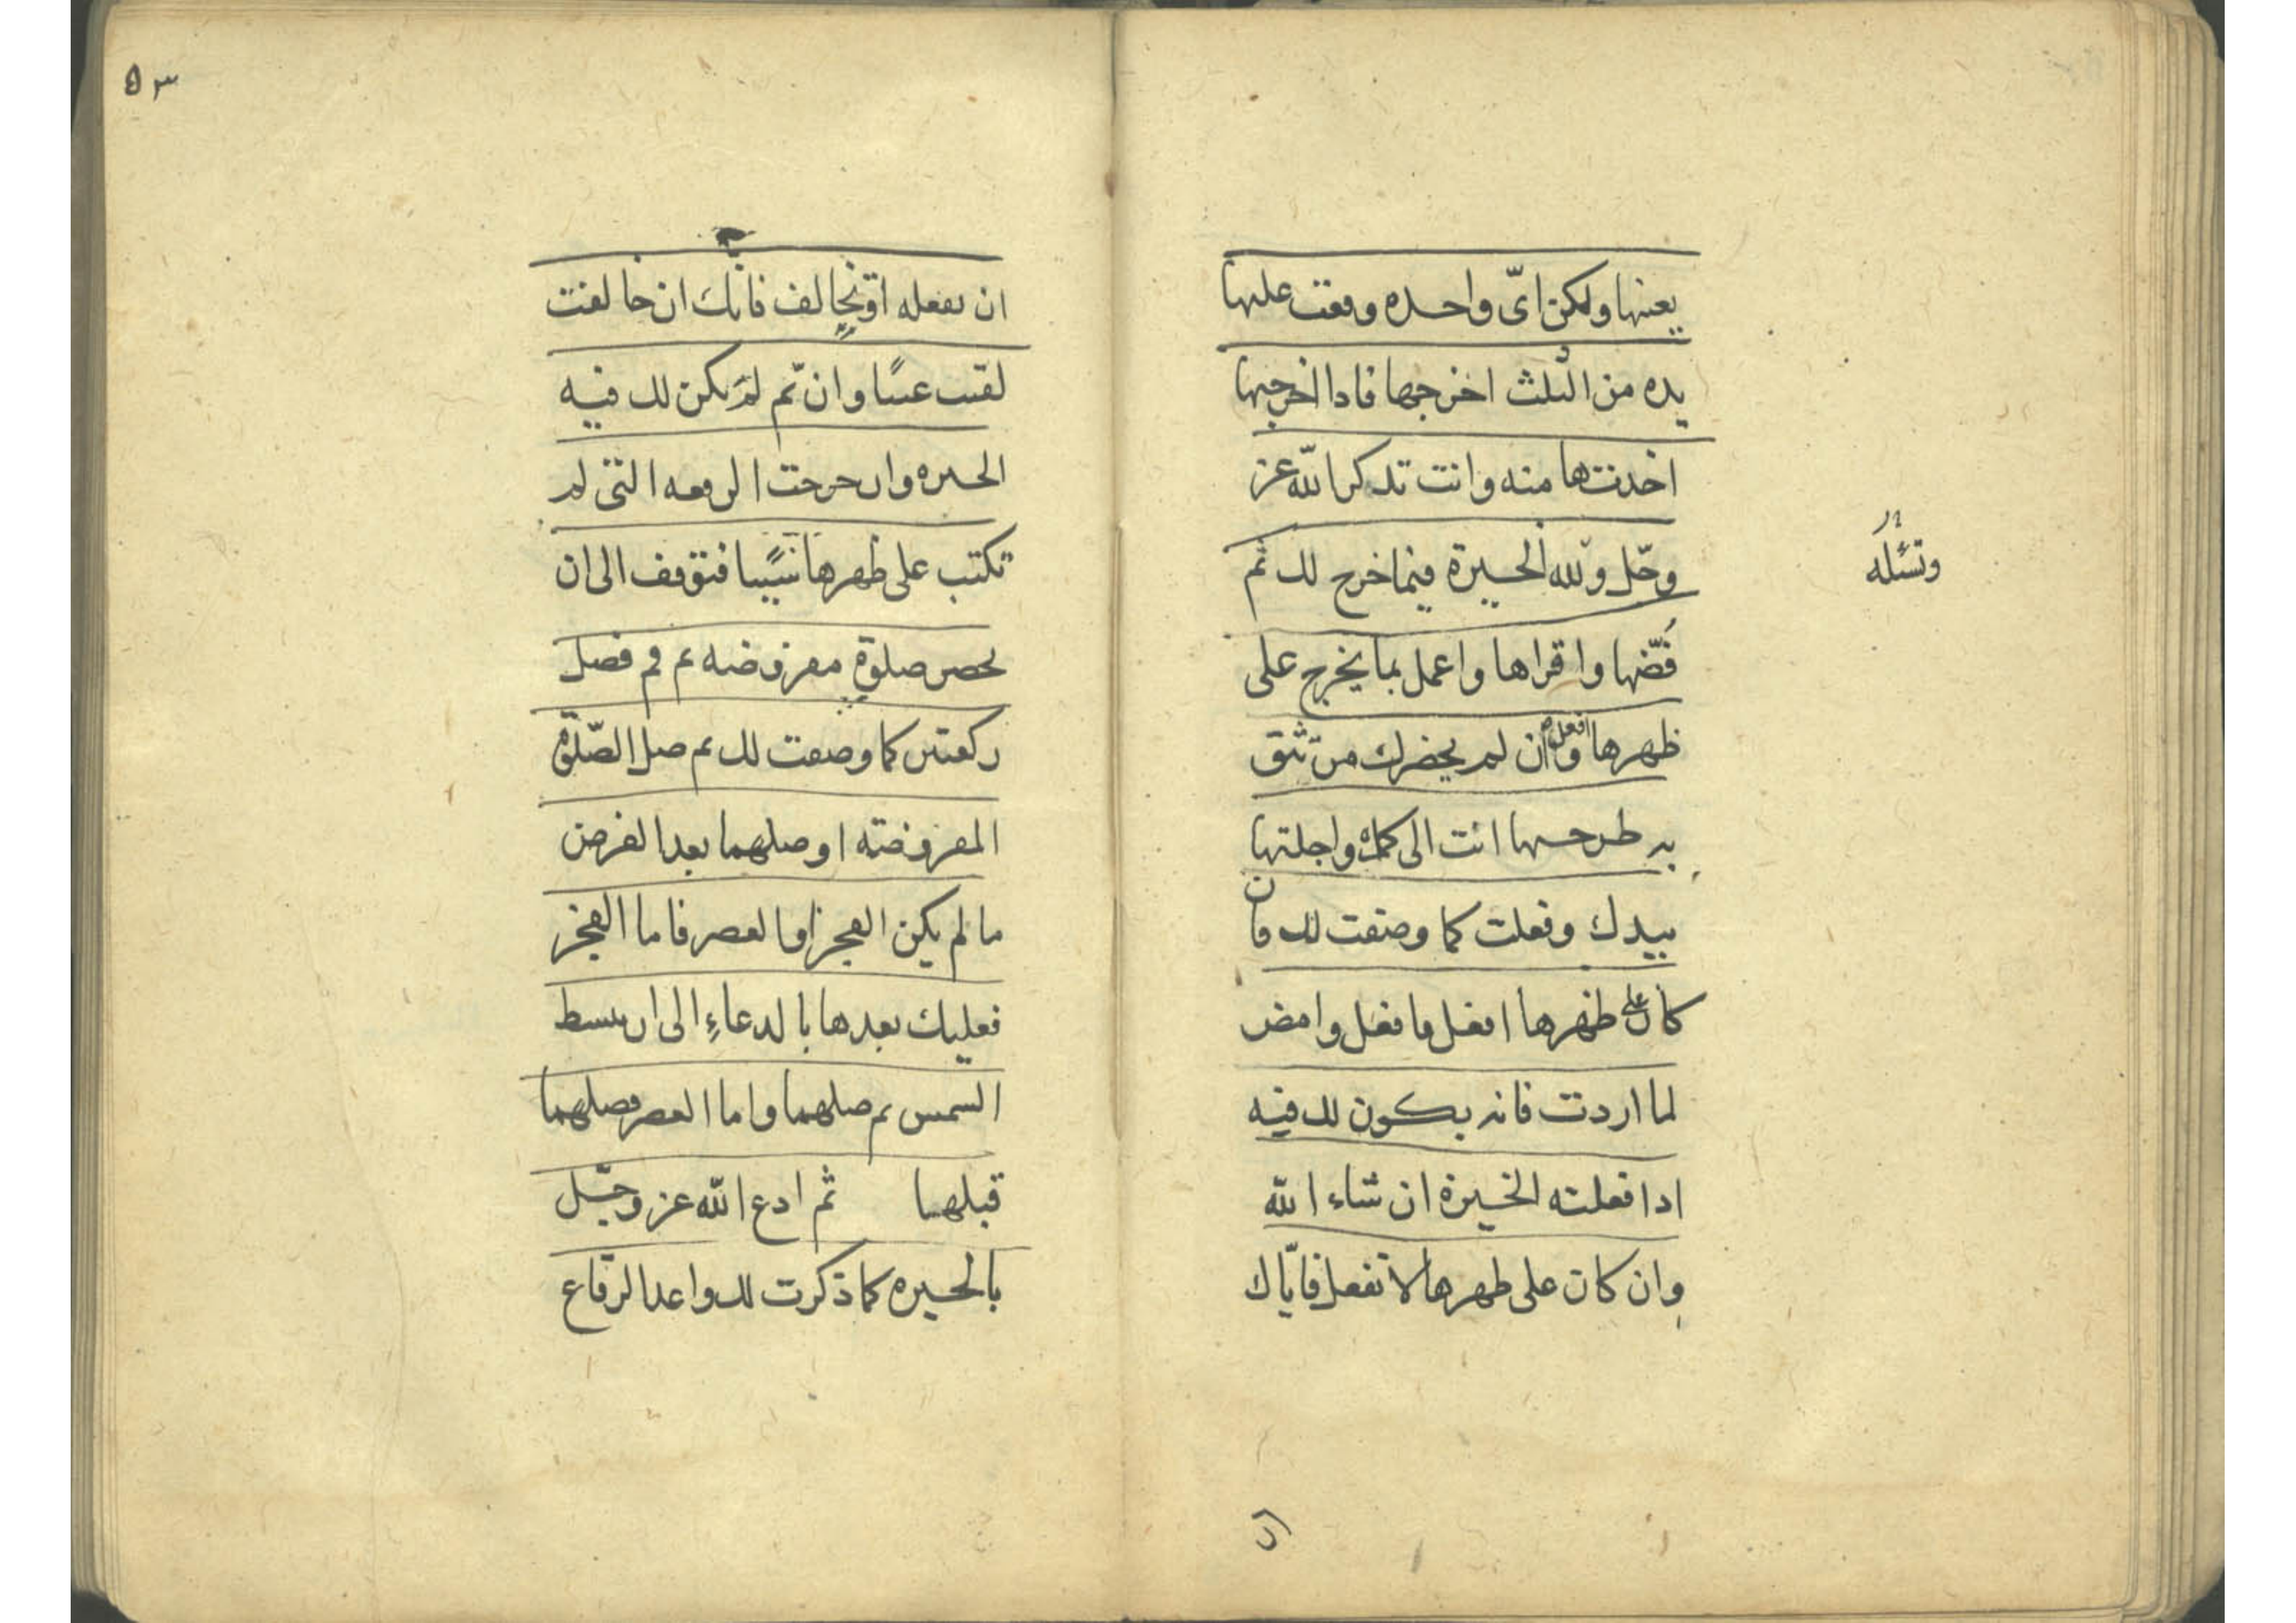 بعينها ولكن اىّ واحده وقعت عليها
يده من الثلث اخرجها فادا اخرجها
اخدتها منه وانت تدكر الله عز
وجّل ولله الخيرة فيما خرج لك ثم
وتسئله
فُضّها واقراها واعمل بما يخرج على
ظهرها وان لم يحضرك من تثق
افعله
به طرحتها انت الى كمك واجلتها
بيدك وفعلت كما وصفت لك فان
كان على ظهرها افعل فافعل وامض
لما اردت فانه يكون لك فيه
ادا فعلته الخيرة ان شاء الله
وان كان على طهرها لا تفعل فايّاك
٥٣
ان تفعله او تخالف فانك ان خالفت
لقيت عنتًا وان تم لم يكن لك فيه
الحيره وان حرجت الرقعه التى لم
تكتب على ظهرها شيئًا فتوقف الى ان
تحضر صلوةٍ مفروضه ثم قم فصل
ركعتين كما وصفت لك ثم صل الصّلوة
المفروضته او صلهما بعد الفرض
ما لم يكن الفجر او العصر فاما الفجر
فعليك بعدها بالدعاءِ الى ان تبسط
الشمس ثم صلهما واما العصر فصلهما
قبلها ثم ادع الله عز وجّل
بالحيره كما ذكرت لك واعد الرقاع